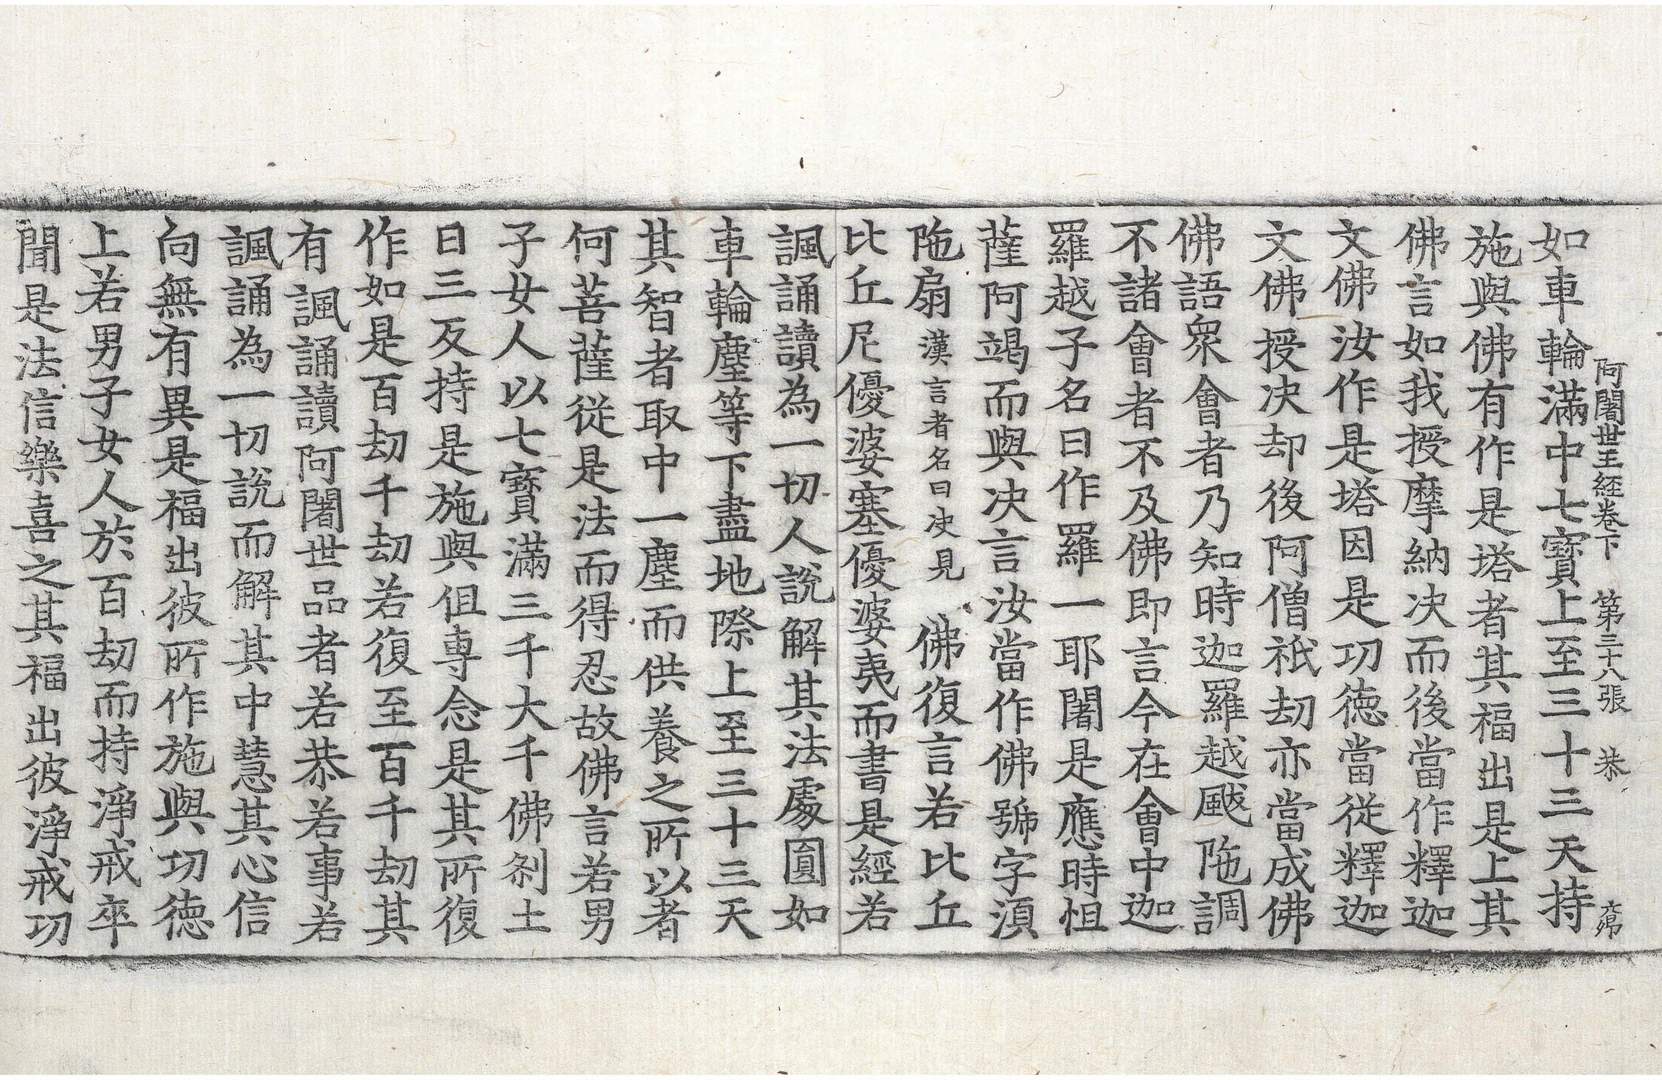 阿闍世王経卷下　第三十八張　恭
如車輪滿中七寶上至三十三天持
施與佛有作是塔者其福出是上其
佛言如我授摩納决而後當作釋迦
文佛汝作是塔因是功德當從釋迦
文佛授决却後阿僧祇劫亦當成佛
佛語衆會者乃知時迦羅越颰陁調
不諸會者不及佛即言今在會中迦
羅越子名曰作羅一耶闍是應時怛
薩阿竭而與决言汝當作佛號字湏
陁扇漢言者名曰决見　佛復言若比丘
比丘尼優婆塞優婆夷而書是經若
諷誦讀為一切人說解其法處圓如
車輪塵等下盡地際上至三十三天
其智者取中一塵而供養之所以者
何菩薩從是法而得忍故佛言若男
子女人以七寶滿三千大千佛剎土
日三反持是施與但專念是其所復
作如是百劫千劫若復至百千劫其
有諷誦讀阿闍世品者若恭若事若
諷誦為一切說而解其中慧其心信
向無有異是福出彼所作施與功德
上若男子女人於百劫而持淨戒卒
聞是法信樂喜之其福出彼淨戒功